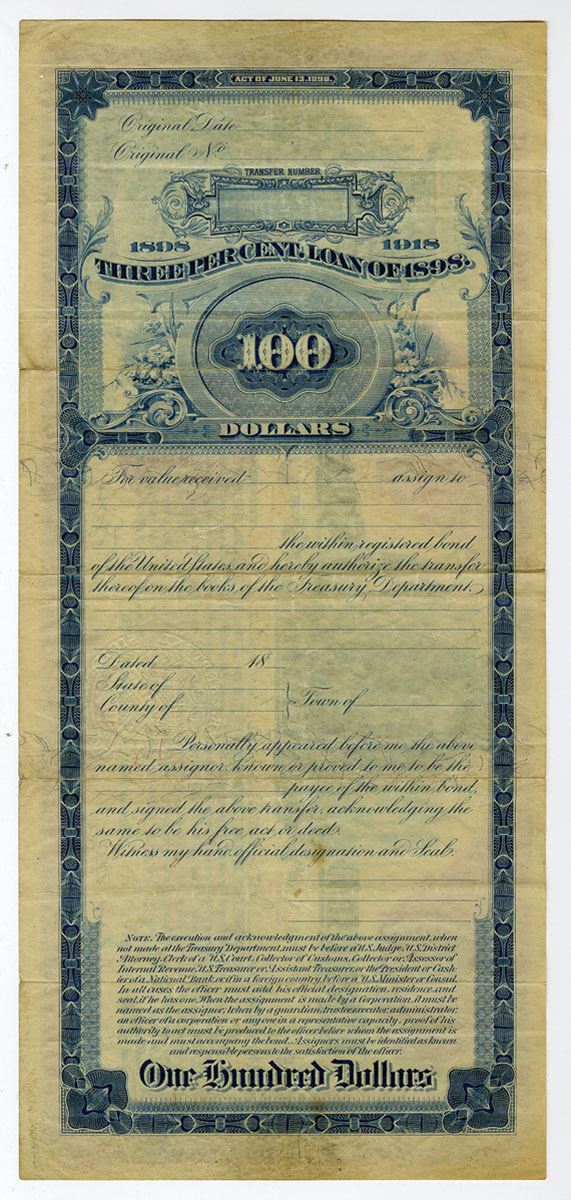 ACT OF JUNE 13, 1898.
Original Date
Original No.
TRANSFER NUMBER
1898 1918
THREE PER CENT. LOAN OF 1898.
100
DOLLARS
For value received assign to
the within registered bond
of the United States, and hereby authorize the transfer
thereof on the books of the Treasury Department.
Dated 18
State of
County of } Town of
Personally appeared before me the above
named assignor, known or proved to me to be the
payee of the within bond,
and signed the above transfer, acknowledging the
same to be his free act or deed.
Witness my hand, official designation and Seal.
NOTE. The execution and acknowledgment of the above assignment, when
not made at the Treasury Department, must be before a U.S. Judge, U.S. District
Attorney, Clerk of a U.S. Court, Collector of Customs, Collector or Assessor of
Internal Revenue, U.S. Treasurer or Assistant Treasurer, or the President or Cash-
ier of a National Bank; or if in a foreign country, before a U.S. Minister or Consul.
In all cases, the officer must add his official designation, residence, and
seal, if he has one. When the assignment is made by a Corporation, it must be
named as the assignor, when by a guardian, trustee, executor, administrator,
an officer of a corporation or any one in a representative capacity, proof of his
authority to act must be produced to the officer before whom the assignment is
made and must accompany the bond. Assignors must be identified as known
and responsible persons to the satisfaction of the officer.
One Hundred Dollars